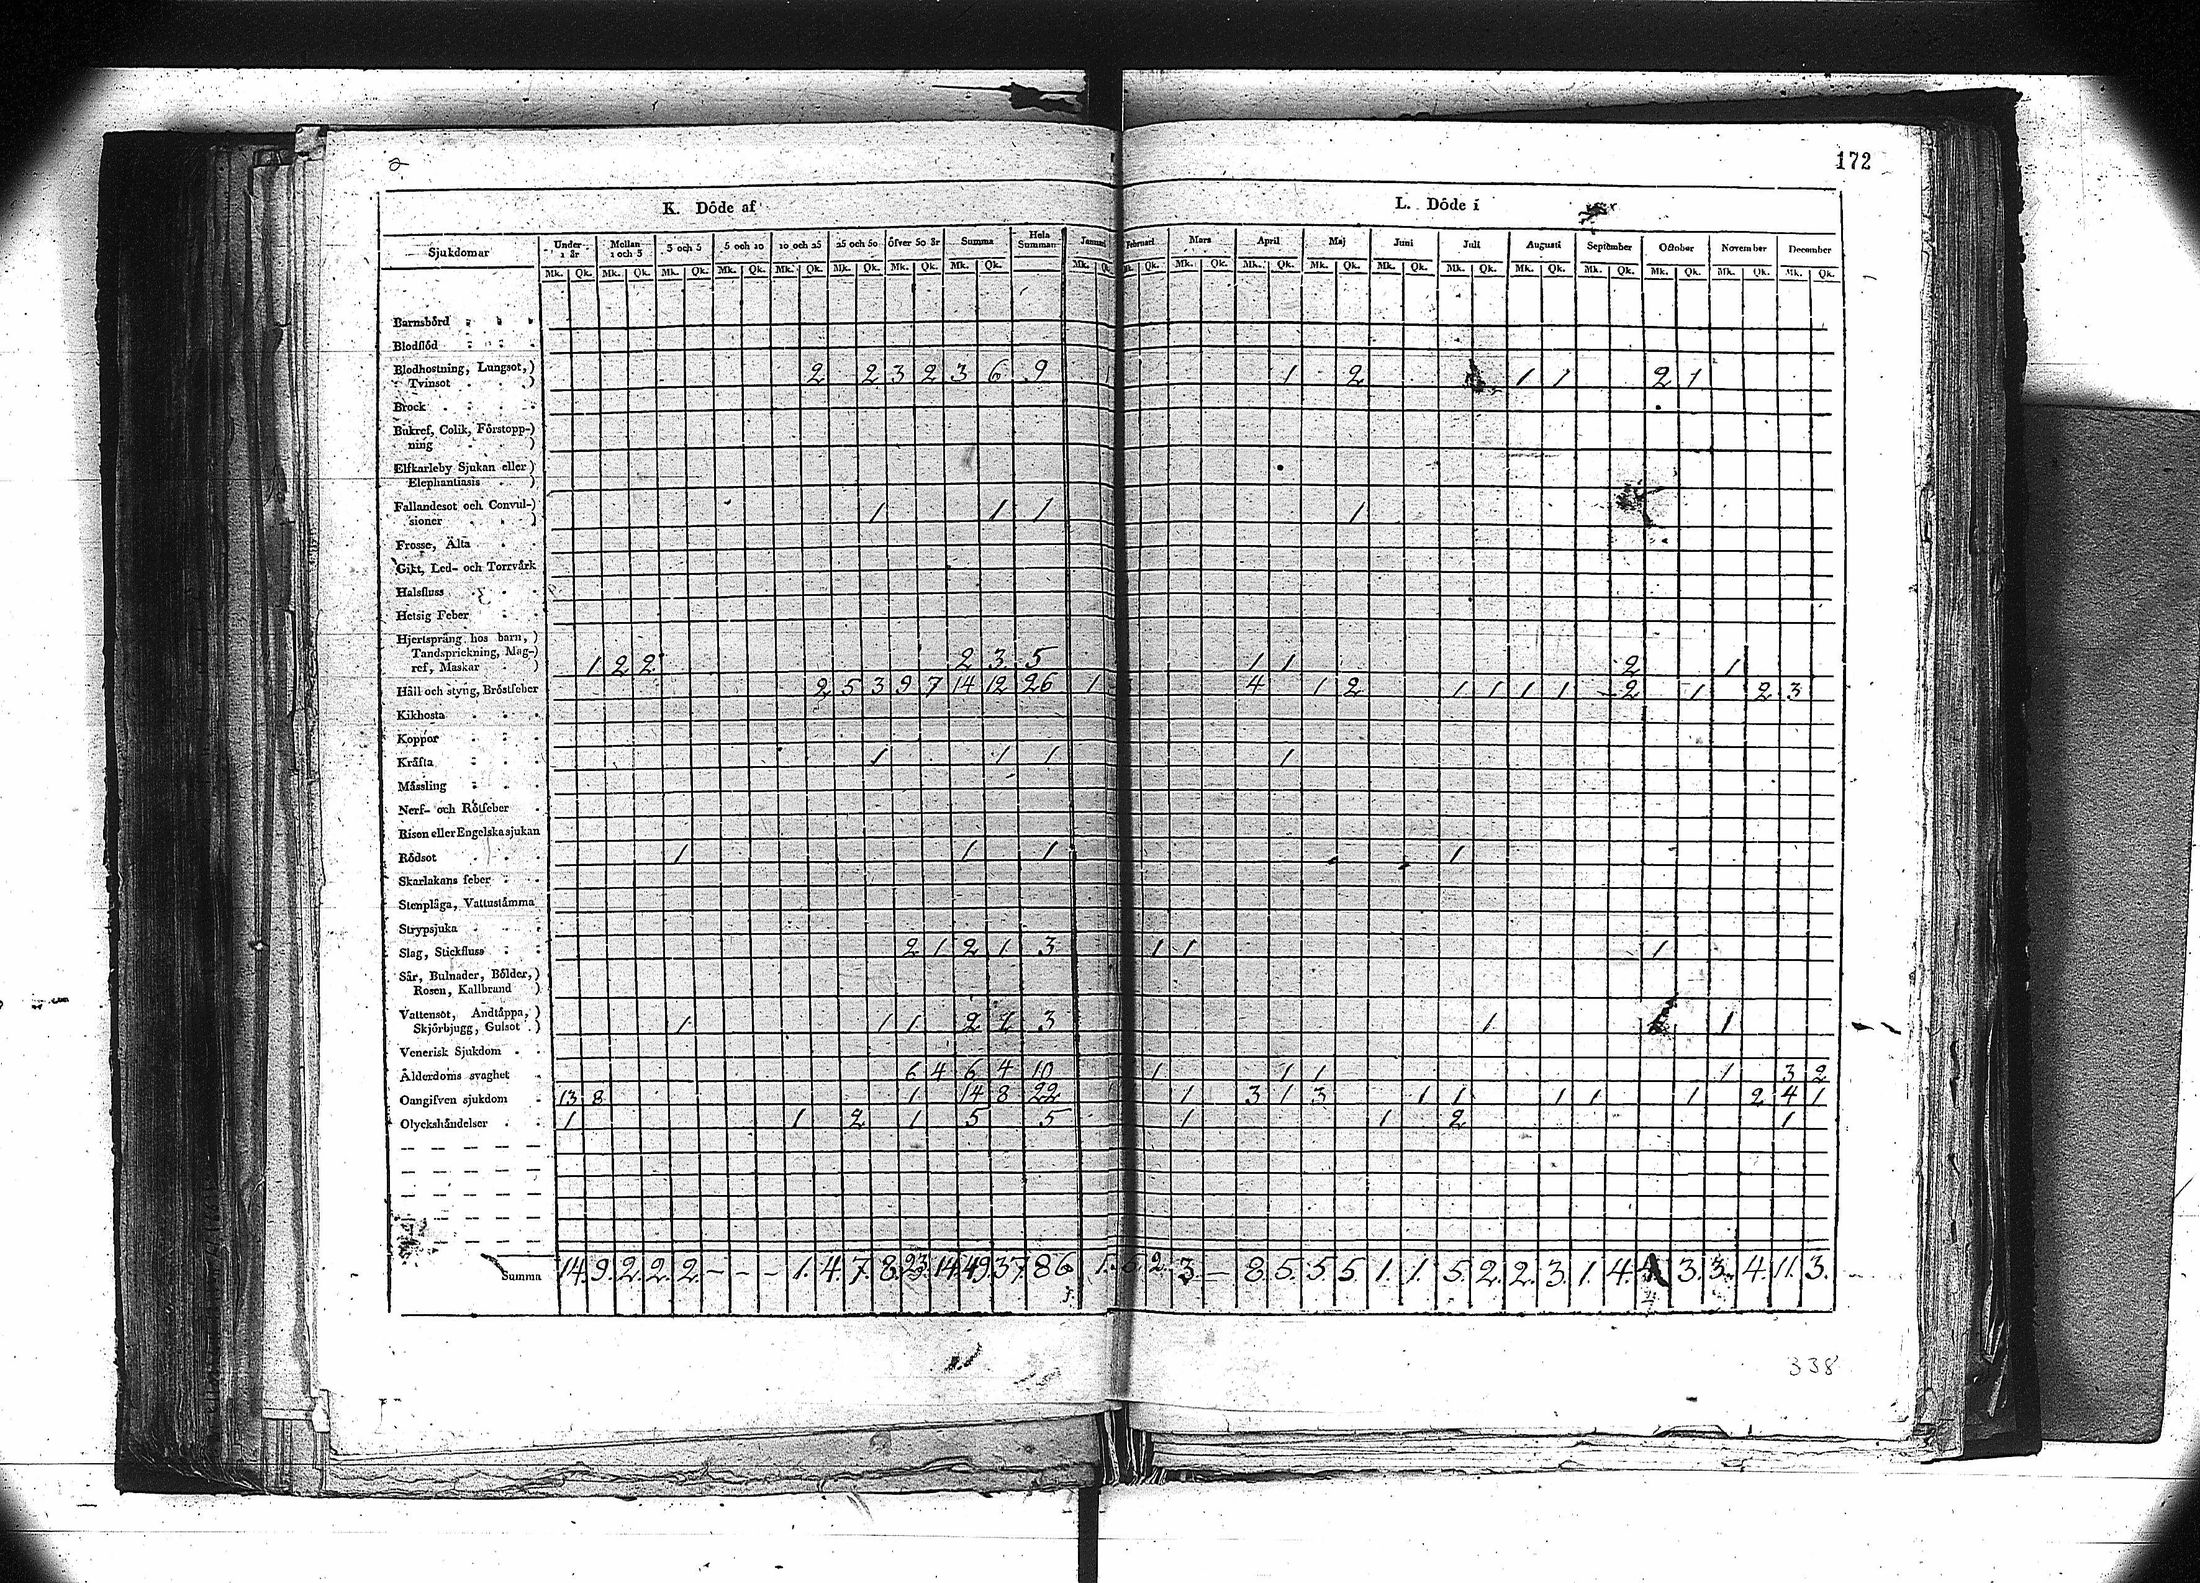 2
172
K. Döde af
L. Döde i
Sjukdomar Under 1 år Mellan 1 och 3 3 och 5 5 och 10 10 och 25 25 och 50 Öfver 50 år Summa Hela Summan Januari Februari Mars April Maj Juni Juli Augusti September October November December
Mk. Qk. Mk. Qk. Mk. Qk. Mk. Qk. Mk. Qk. Mk. Qk. Mk. Qk. Mk. Qk. Mk. Qk. Mk. Qk. Mk. Qk. Mk. Qk. Mk. Qk. Mk. Qk. Mk. Qk. Mk. Qk. Mk. Qk. Mk. Qk. Mk. Qk. Mk. Qk.
Barnsbörd
Blodflöd
Blodhostning, Lungsot,)
Tvinsot ) 2 2 3 2 3 6 9 1 1 2 1 1 2 1
Brock
Bukref, Colik, Förstopp-)
ning )
Elfkarleby Sjukan eller)
Elephantiasis )
Fallandesot och Convul-)
sioner ) 1 1 1 1
Frosse, Älta
Gikt, Led- och Torrvärk
Halsfluss
Hetsig Feber
Hjertspräng hos barn, )
Tandsprickning, Mag-)
ref, Maskar ) 1 2 2 2 3 5 1 1 2 1
Håll och styng, Bröstfeber 2 5 3 9 7 14 12 26 1 4 1 2 1 1 1 1 2 1 2 3
Kikhosta
Koppor
Kräfta 1 1 1 1
Mässling
Nerf- och Rötfeber
Risen eller Engelska sjukan
Rödsot 1 1 1 1
Skarlakans feber
Stenplåga, Vattustämma
Strypsjuka
Slag, Stickfluss 2 1 2 1 3 1 1 1
Sår, Bulnader, Bölder,)
Rosen, Kallbrand )
Vattensot, Andtäppa,)
Skjörbjugg, Gulsot ) 1 1 1 2 3 1 1
Venerisk Sjukdom
Ålderdoms svaghet 6 4 6 4 10 1 1 1 1 3 2
Oangifven sjukdom 13 8 1 14 8 22 1 3 1 3 1 1 1 1 1 2 4 1
Olyckshändelser 1 1 2 1 5 5 1 1 2 1
Summa 14. 9. 2. 2. 2. – – – 1. 4. 7. 8. 23. 14. 49. 37. 86. 1. 2. 3. – 8. 5. 5. 5. 1. 1. 5. 2. 2. 3. 1. 4. 3. 3. 4. 11. 3.
338